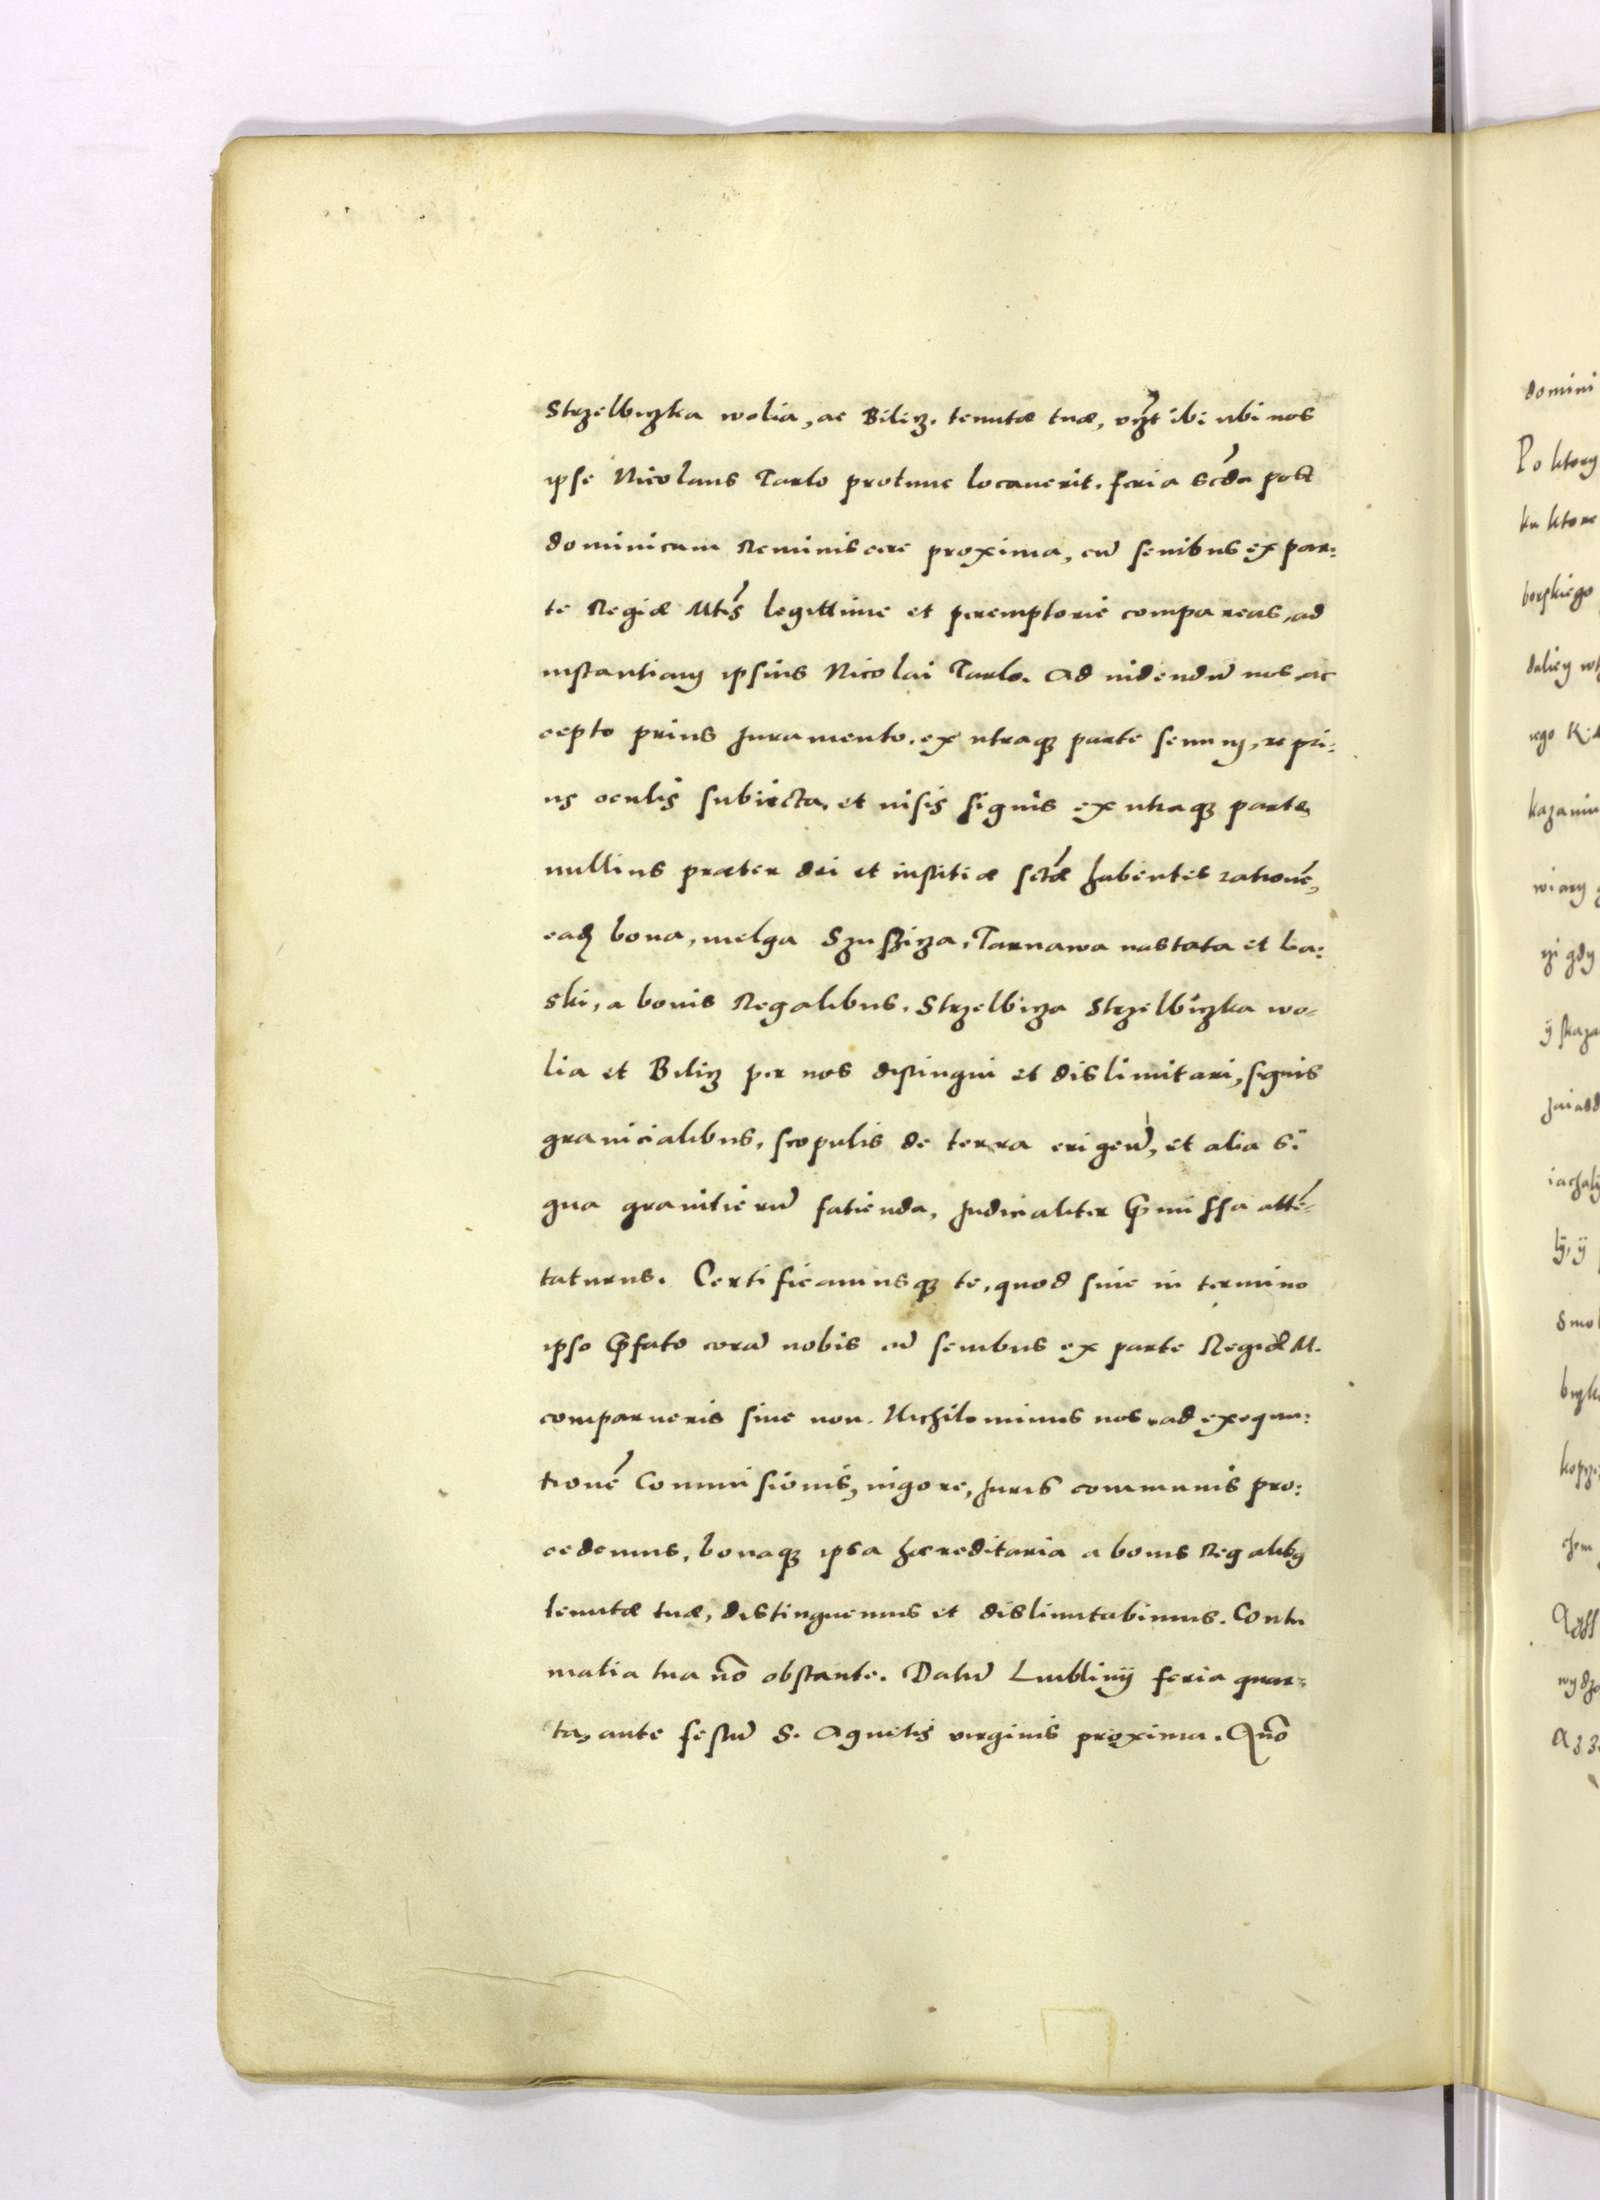 Strzelbiczka wolia, ac Bilicz. tenutæ tuæ, vz̃t ibi ubi nos
ipse Nicolaus Tarlo protunc locauerit. feria scďa post
dominicam Reminiscere proxima, cũ senibus ex par:
te Regiæ Mtis̃ legittime et peremptorie compareas, ad
instantiam ipsius Nicolai Tarlo. Ad uidendũ nos, ac
cepto prius Juramento. ex utraqꝫ parte senum, re pri:
us oculis subiecta, et uisis signis ex utraqꝫ parte,
nullius præter dei et iustitiæ sctæ̃ habentes rationẽ,
eadꝫ bona, uidelicet Szusziza, Tarnawa nastata et La:
ski, a bonis Regalibus. Strzelbicza Strzelbiczka wo-
lia et Bilicz per nos distingui et dislimitari, signis
granicialibus, scopulis de terra erigen̄, et alia si
gna granitierũ fatienda, Judicialiter p̄missa attẽ-
taturus. Certificamusqꝫ te, quod siue in termino
ipso p̄fato corã nobis cũ senibus ex parte Regiæ M.
comparueris siue non. Nichilominus nos ad exequu:
tionẽ Commisionis, uigore, Juris communis pro:
cedemus, bonaqꝫ ipsa hæreditaria a bonis Regalibꝰ
tenutæ tuæ, distinguemus et dislimitabimus. Contu
matia tua nõ obstante. Datũ Lublinij feria quar-
ta, ante festũ S. Agnetis virginis proxima. Añno
domini
Po ktory
ku ktore
borskiego
daliey
wiary
gdy